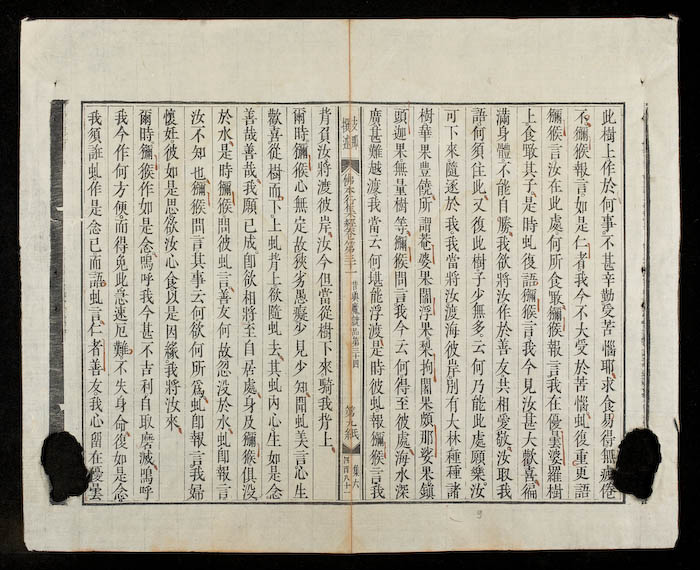 此樹上作於何事不甚辛勤受苦惱耶求食易得無疲倦
不獼猴報言如是仁者我今不大受於苦惱虬復重更語
獼猴言汝在此處何所食噉獼猴報言我在優曇婆羅樹
上食噉其子是時虬復語獼猴言我今見汝甚大歡喜徧
滿身體不能自勝我欲將汝作於善友共相愛敬汝取我
語何須住此又復此樹子少無多云何乃能此處願樂汝
可下來隨逐於我我當將汝渡海彼岸別有大林種種諸
樹華果豐饒所謂菴婆果閻浮果梨拘闍果頗那娑果鎮
頭迦果無量樹等獼猴問言我今云何得至彼處海水深
廣甚難越渡我當云何堪能浮渡是時彼虬報獼猴言我
支那撰述
佛本行集經卷第三十一
昔與魔競品第三十四
第九紙
集六
背負汝將渡彼岸汝今但當從樹下來騎我背上
爾時獼猴心無定故狹劣愚癡少見少知聞虬美言心生
歡喜從樹而下上虬背上欲隨虬去其虬內心生如是念
善哉善哉我願已成卽欲相將至自居處身及獼猴俱沒
於水是時獼猴問彼虬言善友何故忽沒於水虬卽報言
汝不知也獼猴問言其事云何欲何所爲虬卽報言我婦
懷妊彼如是思欲汝心食以是因緣我將汝來
爾時獼猴作如是念嗚呼我今甚不吉利自取磨滅嗚呼
我今作何方便而得免此急速厄難不失身命復如是念
我須誑虬作是念已而語虬言仁者善友我心留在優曇